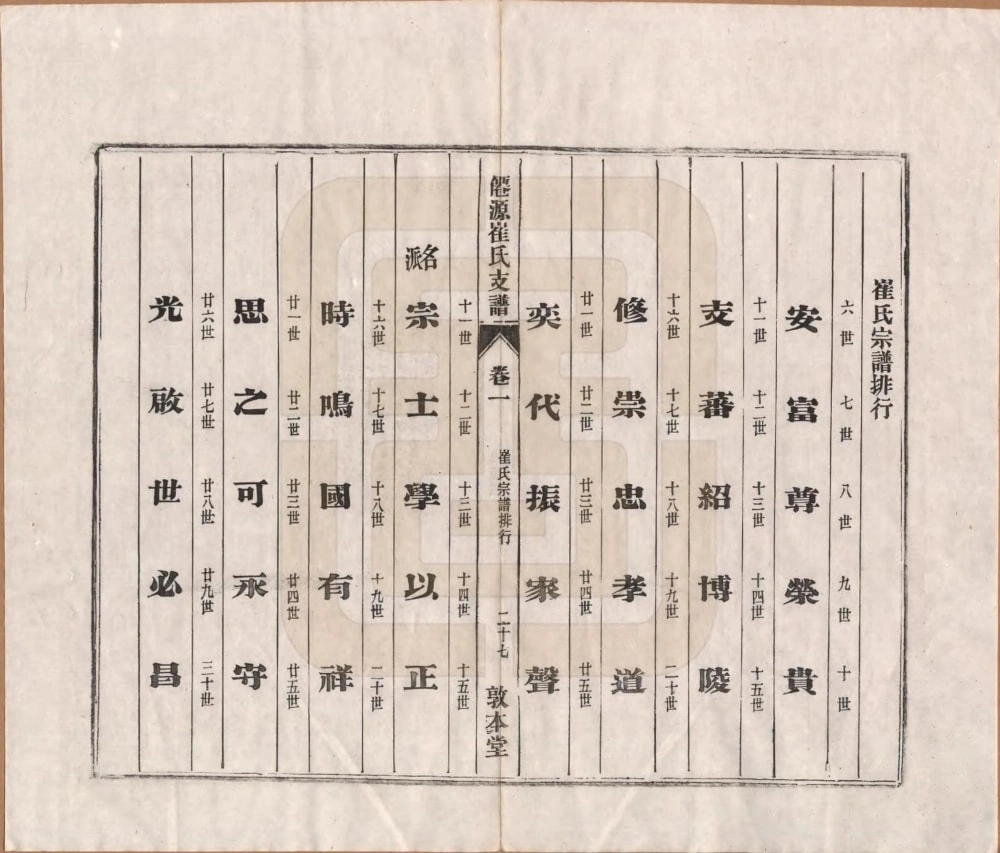 崔氏宗譜排行
六世 七世 八世 九世 十世
安富尊榮貴
十一世 十二世 十三世 十四世 十五世
支蕃紹博陵
十六世 十七世 十八世 十九世 二十世
修崇忠孝道
廿一世 廿二世 廿三世 廿四世 廿五世
奕代振家聲
源崔氏支譜 卷一 崔氏宗譜排行 二十七 敦本堂
十一世 十二世 十三世 十四世 十五世
名派 宗士學以正
十六世 十七世 十八世 十九世 二十世
時鳴國有祥
廿一世 廿二世 廿三世 廿四世 廿五世
思之可永守
廿六世 廿七世 廿八世 廿九世 三十世
光啟世必昌